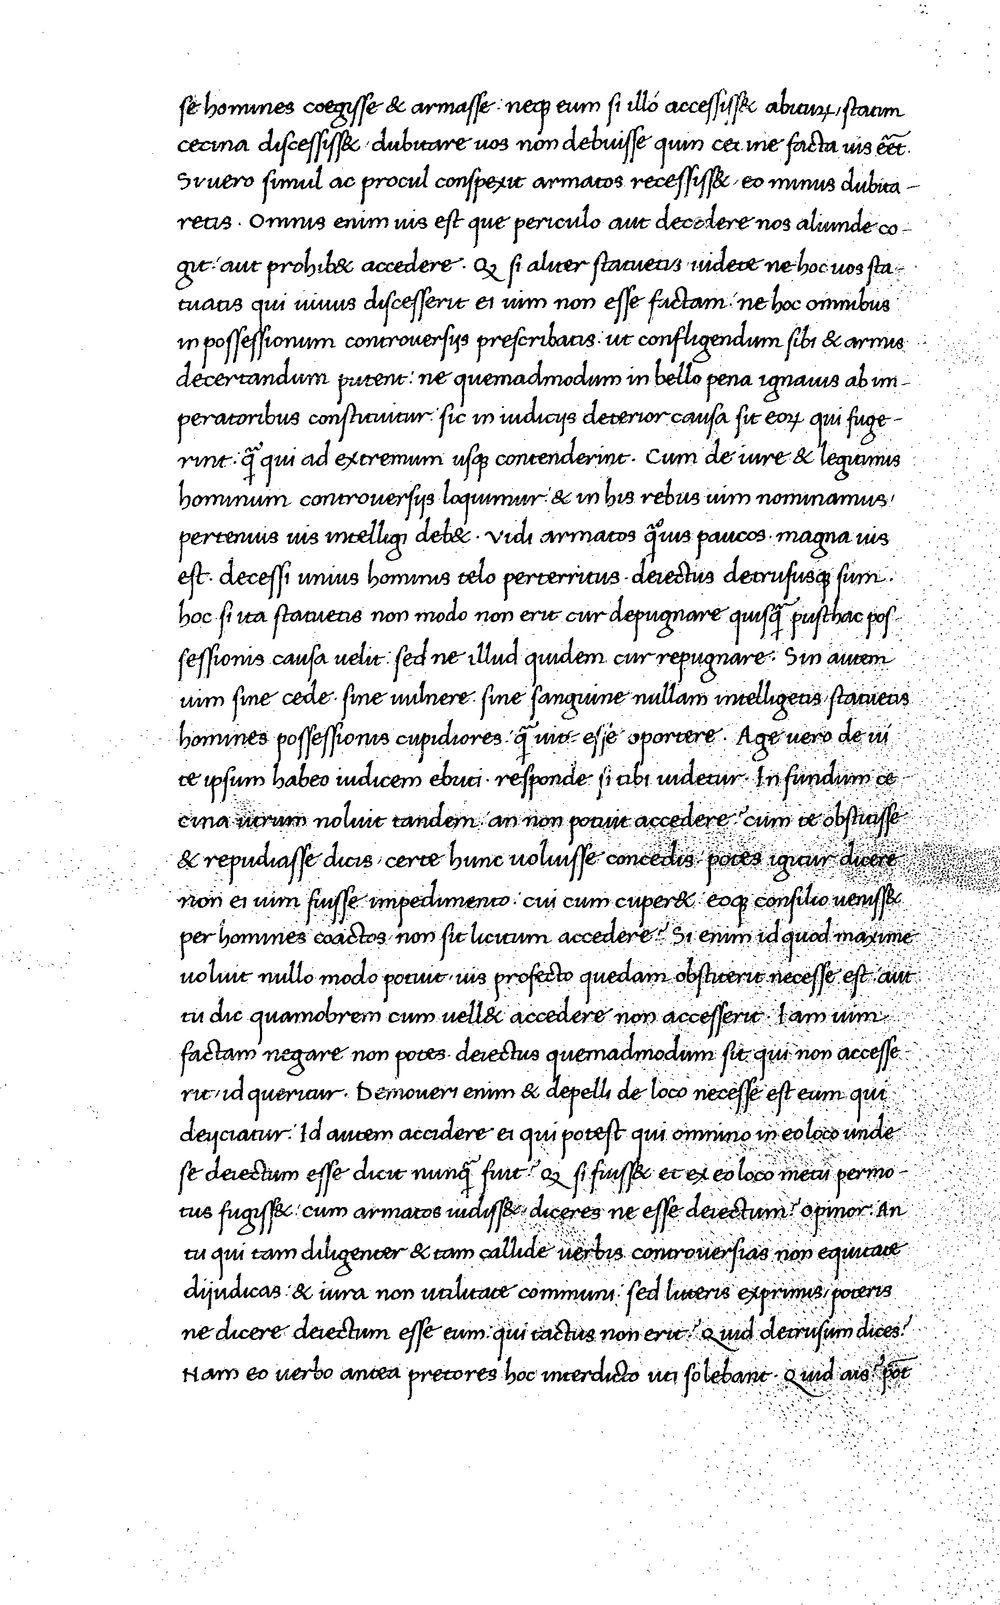 se homines coegisse & armasse · neqꝫ eum si illo accessiss& abituꝝ, statim
cecina discessiss& · dubitare uos non debuisse quin cei ine facta uis eēt.
Si uero simul ac procul conspexit armatos recessiss&, eo minus dubita-
retis. Omnis enim uis est que periculo aut decedere nos aliunde co-
git: aut prohib& accedere. Q̃ si aliter statuetis uidete ne hoc uos sta-
tuatis qui uiuus discesserit ei uim non esse factam: ne hoc omnibus
in possessionum controuersijs prescribatis: ut confligendum sibi & armis
decertandum putent: ne quemadmodum in bello pena ignauis ab im-
peratoribus constituitur: sic in iudicijs deterior causa sit eoꝝ qui fuge-
rint: q̃ qui ad extremum usqꝫ contenderint. Cum de iure & legitimis
hominum controuersijs loquimur: & in his rebus uim nominamus,
pertenuis uis intelligi deb&. Vidi armatos q̃uis paucos: magna uis
est. decessi unius hominis telo perterritus · deiectus detrususqꝫ sum.
hoc si ita statuetis non modo non erit cur depugnare quisq̃ pusthac pos-
sessionis causa uelit: sed ne illud quidem cur repugnare. Sin autem
uim sine cede · sine uulnere · sine sanguine nullam intelligetis, statuetis
homines possessionis cupidiores q̃ uite esse oportere. Age uero de ui
te ipsum habeo iudicem ebuti · responde si tibi uidetur. In fundum ce-
cina utrum noluit tandem: an non potuit accedere? cum te obstitisse
& repudiasse dicis · certe hunc uoluisse concedis: potes igitur dicere
non ei uim fuisse impedimento: cui cum cuper& eoqꝫ consilio ueniss&
per homines coactos non sit licitum accedere? Si enim id quod maxime
uoluit nullo modo potuit · uis profecto quedam obstiterit necesse est aut
tu dic quamobrem cum uell& accedere non accesserit. Iam uim
factam negare non potes · deiectus quemadmodum sit qui non accesse-
rit, id queritur. Demoueri enim & depelli de loco necesse est eum qui
deijciatur: Id autem accidere ei qui potest qui omnino in eo loco unde
se deiectum esse dicit nunq̃ fuit? Q̃ si fuiss& et ex eo loco metu permo-
tus fugiss& · cum armatos uidiss& · diceres ne esse deiectum? opinor. An
tu qui tam diligenter & tam callide uerbis controuersias non equitate
dijudicas: & iura non utilitate communi: sed literis exprimis, poteris
ne dicere deiectum esse eum: qui tactus non erit? Quid detrusum dices?
Nam eo uerbo antea pretores hoc interdicto uti solebant. Quid ais? pōt